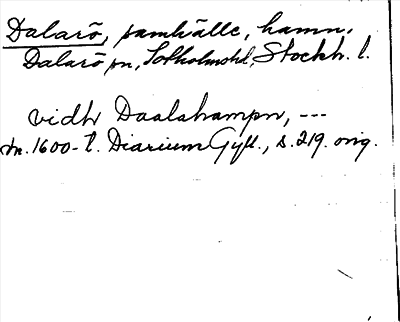 Dalarö, samhälle, hamn,
Dalarö sn, Sotholms hd, Stockh. l.
vidh Daalahampn, ---
1600-t. Diarium Gyll., s. 219. orig.